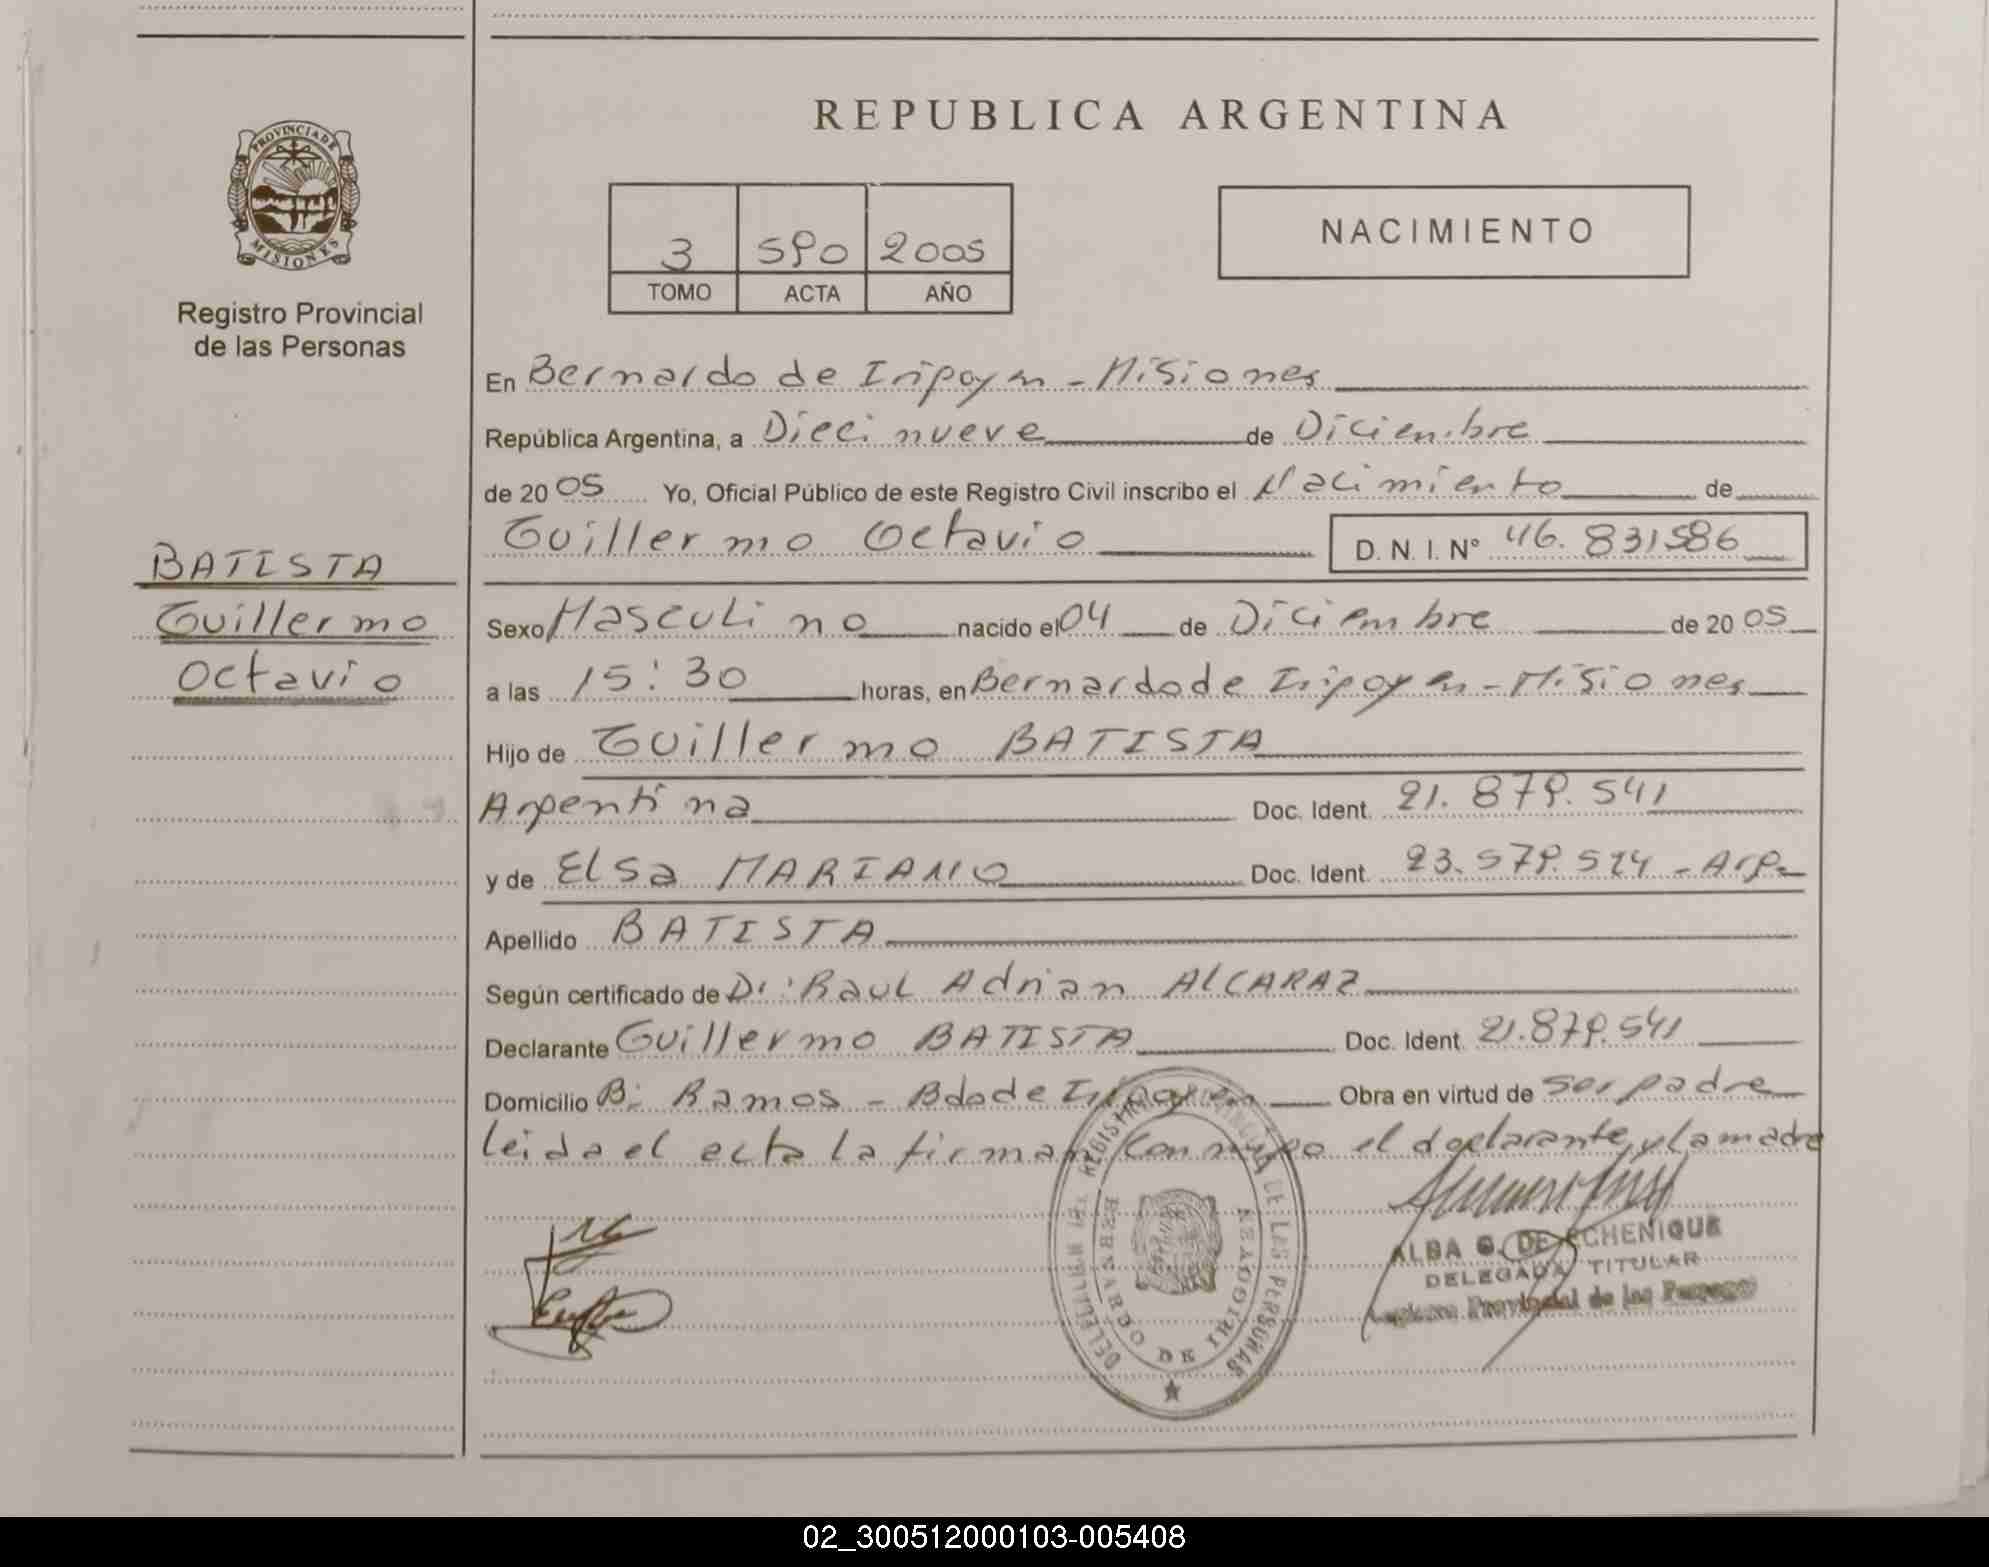 REPUBLICA ARGENTINA
PROVINCIA DE
MISIONES
Registro Provincial
de las Personas
3 590 2005
TOMO ACTA AÑO
NACIMIENTO
En Bernardo de Irigoyen - Misiones
República Argentina, a Diecinueve de Diciembre
de 2005 Yo, Oficial Público de este Registro Civil inscribo el Nacimiento de
Guillermo Octavio D. N. I. Nº 46.831586
BATISTA
Guillermo
Octavio
Sexo Masculino nacido el 04 de Diciembre de 2005
a las 15:30 horas, en Bernardo de Irigoyen - Misiones
Hijo de Guillermo BATISTA
Argentina Doc. Ident. 21.879.541
y de Elsa MARIANO Doc. Ident. 23.579.524 - Arg.
Apellido BATISTA
Según certificado de Dr. Raul Adrian ALCARAZ
Declarante Guillermo BATISTA Doc. Ident. 21.879.541
Domicilio B: Ramos - Bdo de Irigoyen Obra en virtud de ser padre
leida el acta la firman conmigo el declarante y la madre
DELEGACION DEL REGISTRO PROVINCIAL DE LAS PERSONAS
BERNARDO DE IRIGOYEN
ALBA G. DE ECHENIQUE
DELEGADA TITULAR
Registro Provincial de las Personas
02_300512000103-005408